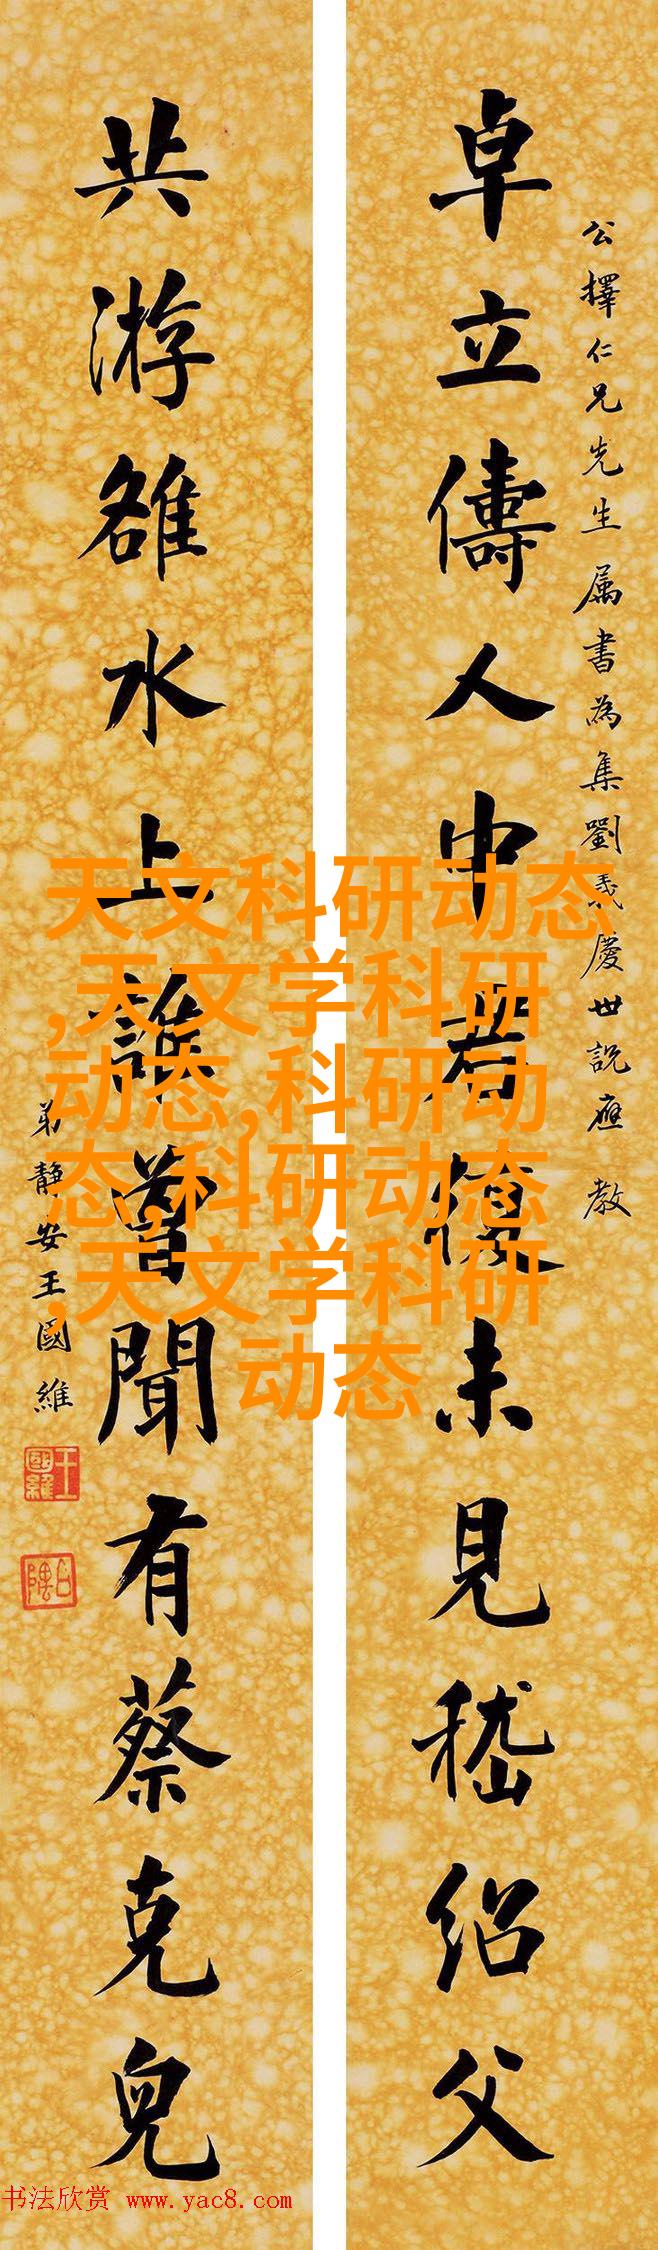 公擇仁兄先生属書為集劉義慶世說應教
卓立儔人中君復未見嵇紹父
共游雒水上誰曾聞有蔡克兒
弟靜安王國維
王國維
天文科研动态
,天文学科研
动态,科研动
态,科研动态
,天文学科研
动态
书法欣赏 www.yac8.com